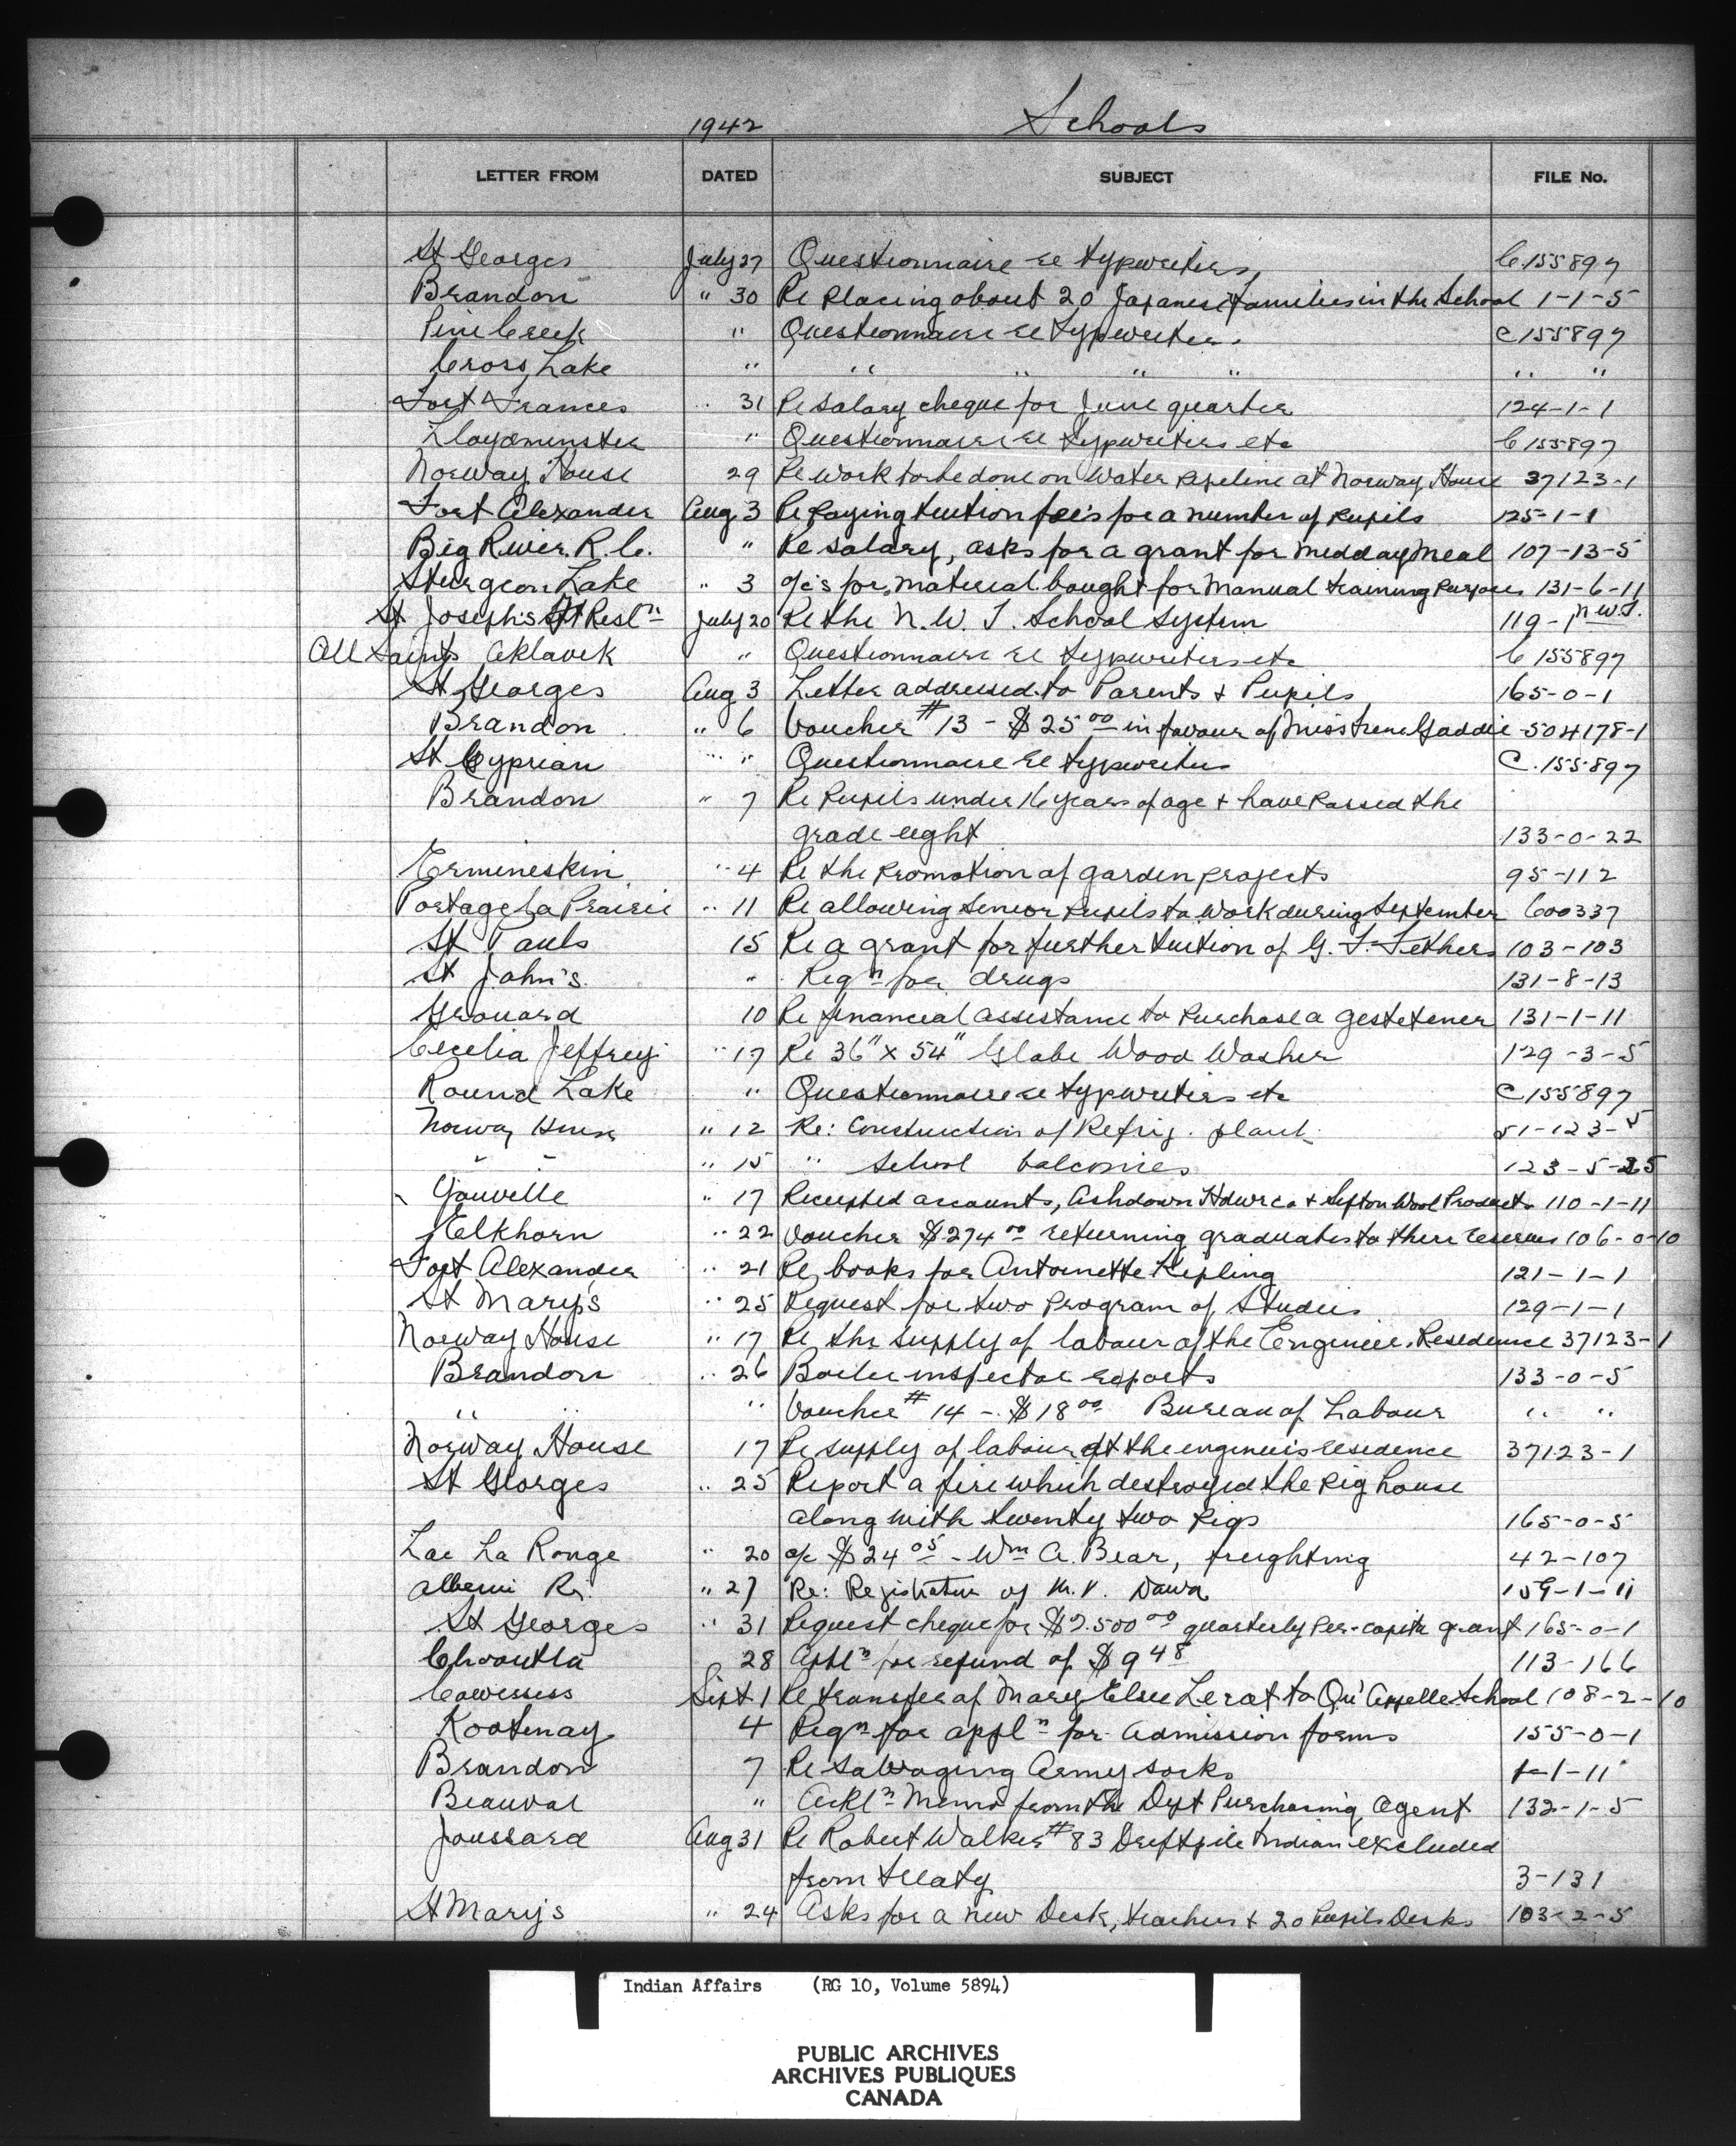 1942 Schools
LETTER FROM DATED SUBJECT FILE No.
St Georges July 27 Questionnaire re typewriters, C.155897
Brandon " 30 Re Placing about 20 Japanese families in the School 1-1-5
Pine Creek " Questionnaire re typewriters. C155897
Cross Lake " " " " " " "
Fort Frances " 31 Re salary cheque for June quarter 124-1-1
Lloydminster " Questionnaire re typewriters etc C155897
Norway House 29 Re work to be done on Water pipeline at Norway House 37123-1
Fort Alexander Aug 3 Re Paying tuition fee's for a number of pupils 125-1-1
Big River R.C. " Re salary, asks for a grant for midday meal 107-13-5
Sturgeon Lake " 3 a/c's for material bought for Manual training purposes 131-6-11
St Joseph's Ft Resln July 20 Re the N.W.T. School System 119-1 N.W.T.
All Saints Aklavik " Questionnaire re typewriters etc C155897
St Georges Aug 3 Letter addressed to Parents & Pupils 165-0-1
Brandon " 6 Voucher #13 - $25 00 in favour of Miss Irene Gaddie 504178-1
St Cyprian " " Questionnaire re typewriters C.155897
Brandon " 7 Re Pupils under 16 years of age & have Passed the
grade eight 133-0-22
Ermineskin " 4 Re the Promotion of garden projects 95-112
Portage La Prairie " 11 Re allowing senior pupils to work during September 600337
St Pauls 15 Re a grant for further tuition of G. F. 103-103
St John's " Reqn for drugs 131-8-13
Grouard 10 Re financial assistance to purchase a gestetener 131-1-11
Cecelia Jeffrey " 17 Re 36" x 54" Globe Wood Washer 129-3-5
Round Lake " Questionnaire re typewriters etc C155897
Norway House " 12 Re: Construction of Refrig. plant. 51-123-5
" " " 15 " School balconies 123-5-25
" 17 Receipted accounts, Ashdown Hdwr Co & Sifton Wool Products 110-1-11
Elkhorn " 22 Voucher $274 00 returning graduates to there reserves 106-0-10
Fort Alexander " 21 Re books for Antoinette Kipling 121-1-1
St Mary's " 25 Request for two Program of Studies 129-1-1
Norway House " 17 Re the supply of labour of the Engineer. Residence 37123-1
Brandon " 26 Boiler inspector reports 133-0-5
" " " Voucher #14 - $18 00 Bureau of Labour " "
Norway House 17 Re supply of labour at the engineers residence 37123-1
St Georges " 25 Report a fire which destroyed the pig house
along with twenty two pigs 165-0-5
Lac La Ronge " 20 a/c $24 05 - Wm A. Bear, freighting 42-107
Alberni Rs. " 27 Re: Registration of M.V. 159-1-11
St Georges " 31 Request cheque for $2.500 00 quarterly Per-capita grant 165-0-1
Chooutla 28 Appln for refund of $9 48 113-166
Cowessess Sept 1 Re transfer of Mary Elsie Lerat to Qu'Appelle School 108-2-10
Kootenay 4 Reqn for appln for admission forms 155-0-1
Brandon 7 Re salvaging Army socks 1-1-11
Beauval " Ackln Memo from the Dept Purchasing Agent 132-1-5
Joussard Aug 31 Re Robert Walker #83 Driftpile Indian excluded
from treaty 3-131
St Marys " 24 Asks for a new Desk, teachers & 20 Pupils Desks 103-2-5
Indian Affairs (RG 10, Volume 5894)
PUBLIC ARCHIVES
ARCHIVES PUBLIQUES
CANADA